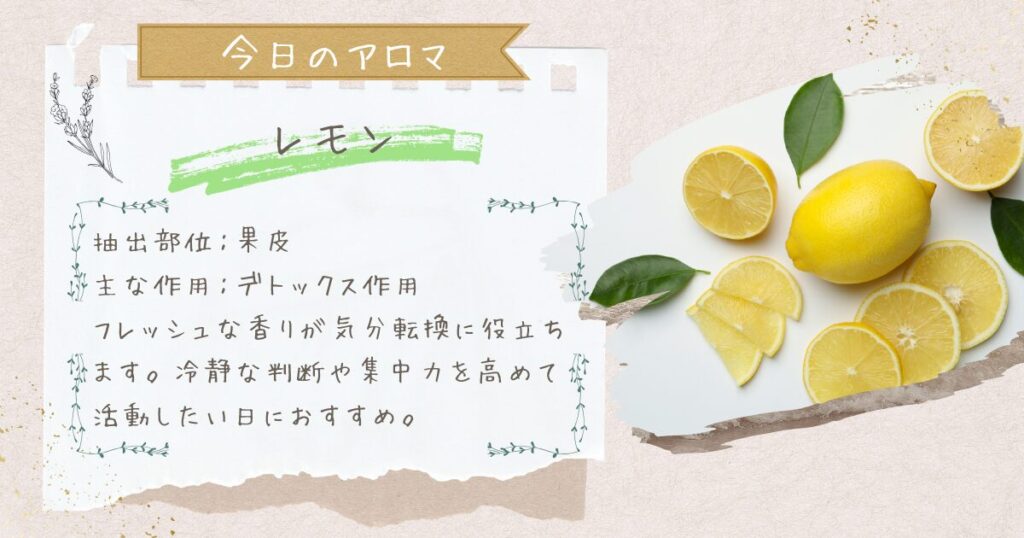 今日のアロマ
レモン
抽出部位;果皮
主な作用;デトックス作用
フレッシュな香りが気分転換に役立ち
ます。冷静な判断や集中力を高めて
活動したい日におすすめ。